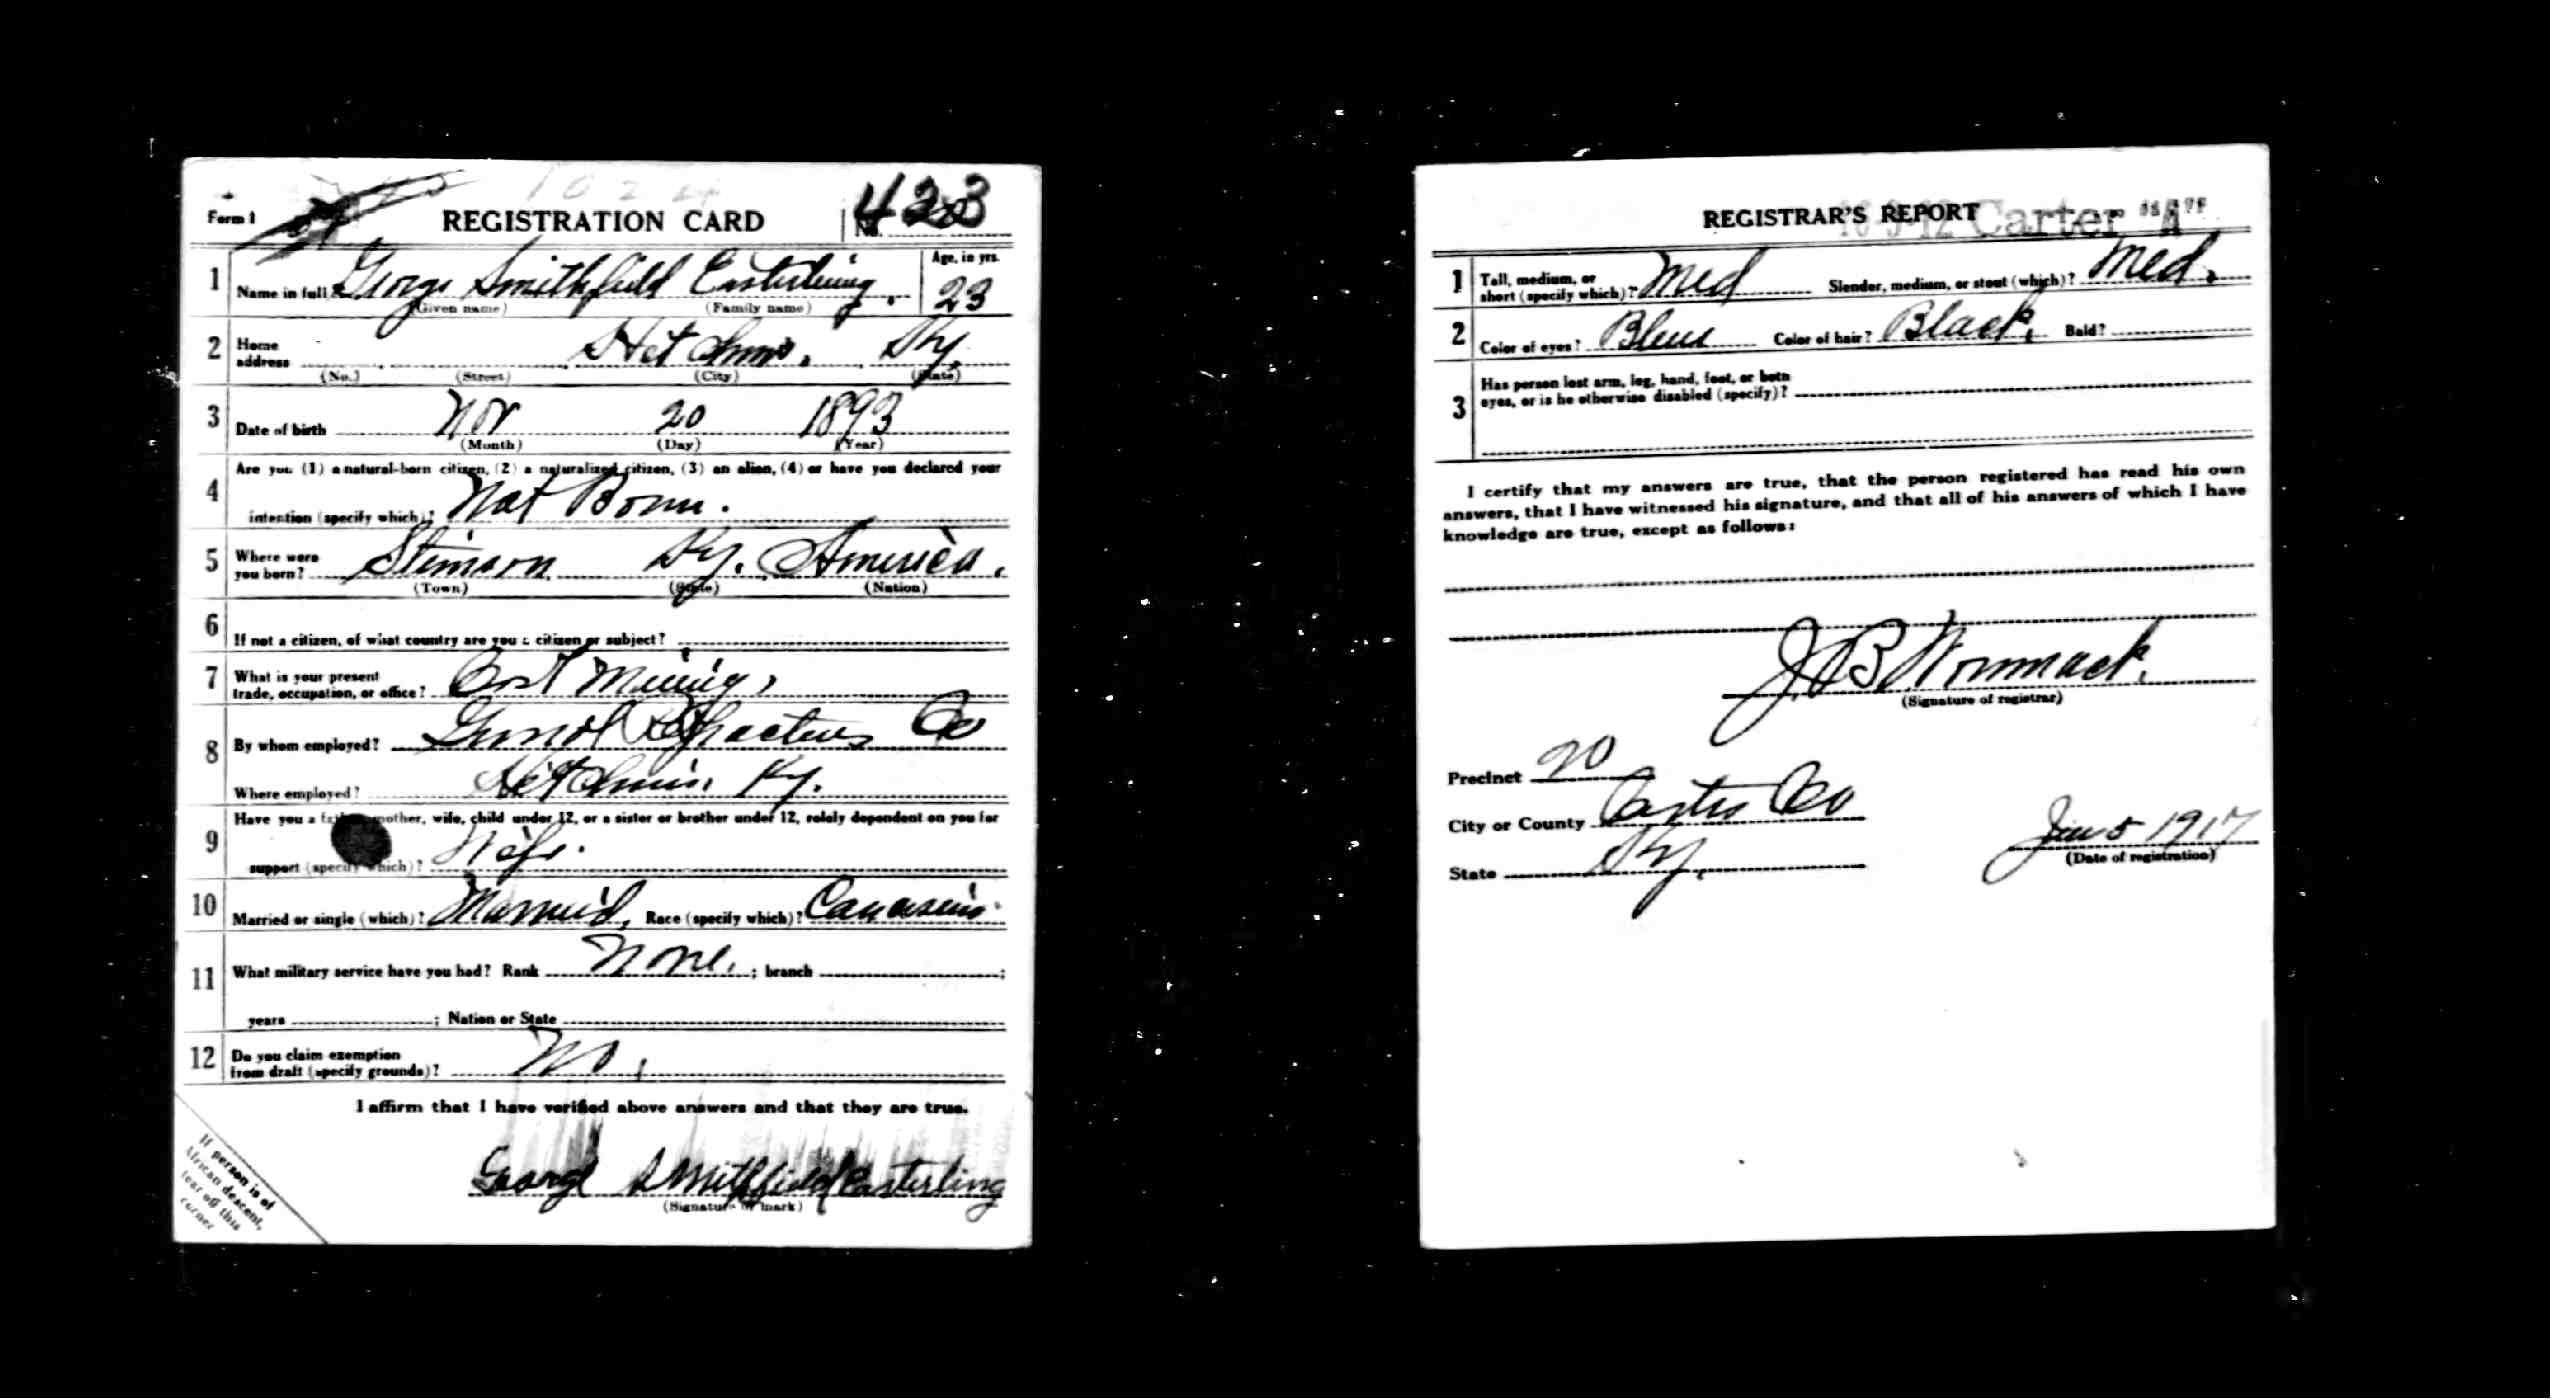 Form 1 REGISTRATION CARD No. 423
1 Name in full George Smithfield Easterling. Age, in yrs. 23
(Given name) (Family name)
2 Home address Hitchins, Ky.
(No.) (Street) (City) (State)
3 Date of birth Nov 20 1893
(Month) (Day) (Year)
4 Are you (1) a natural-born citizen, (2) a naturalized citizen, (3) an alien, (4) or have you declared your
intention (specify which)? Nat Born.
5 Where were you born? Stinson Ky. America.
(Town) (State) (Nation)
6 If not a citizen, of what country are you a citizen or subject?
7 What is your present
trade, occupation, or office? Mining,
8 By whom employed? Refractories Co
Where employed? Hitchins, Ky.
9 Have you a father, mother, wife, child under 12, or a sister or brother under 12, solely dependent on you for
support (specify which)? Wife.
10 Married or single (which)? Married, Race (specify which)? Caucasian
11 What military service have you had? Rank None, ; branch ;
years ; Nation or State
12 Do you claim exemption
from draft (specify grounds)? No,
I affirm that I have verified above answers and that they are true.
George Smithfield Easterling
(Signature or mark)
If person is of
African descent,
tear off this
corner
REGISTRAR'S REPORT 16-9-12 Carter "A"
1 Tall, medium, or
short (specify which)? Med Slender, medium, or stout (which)? Med.
2 Color of eyes? Blue Color of hair? Black, Bald?
3 Has person lost arm, leg, hand, foot, or both
eyes, or is he otherwise disabled (specify)?
I certify that my answers are true, that the person registered has read his own
answers, that I have witnessed his signature, and that all of his answers of which I have
knowledge are true, except as follows:
J B Wommack.
(Signature of registrar)
Precinct 20
City or County Carter Co
State Ky.
Jun 5 1917
(Date of registration)